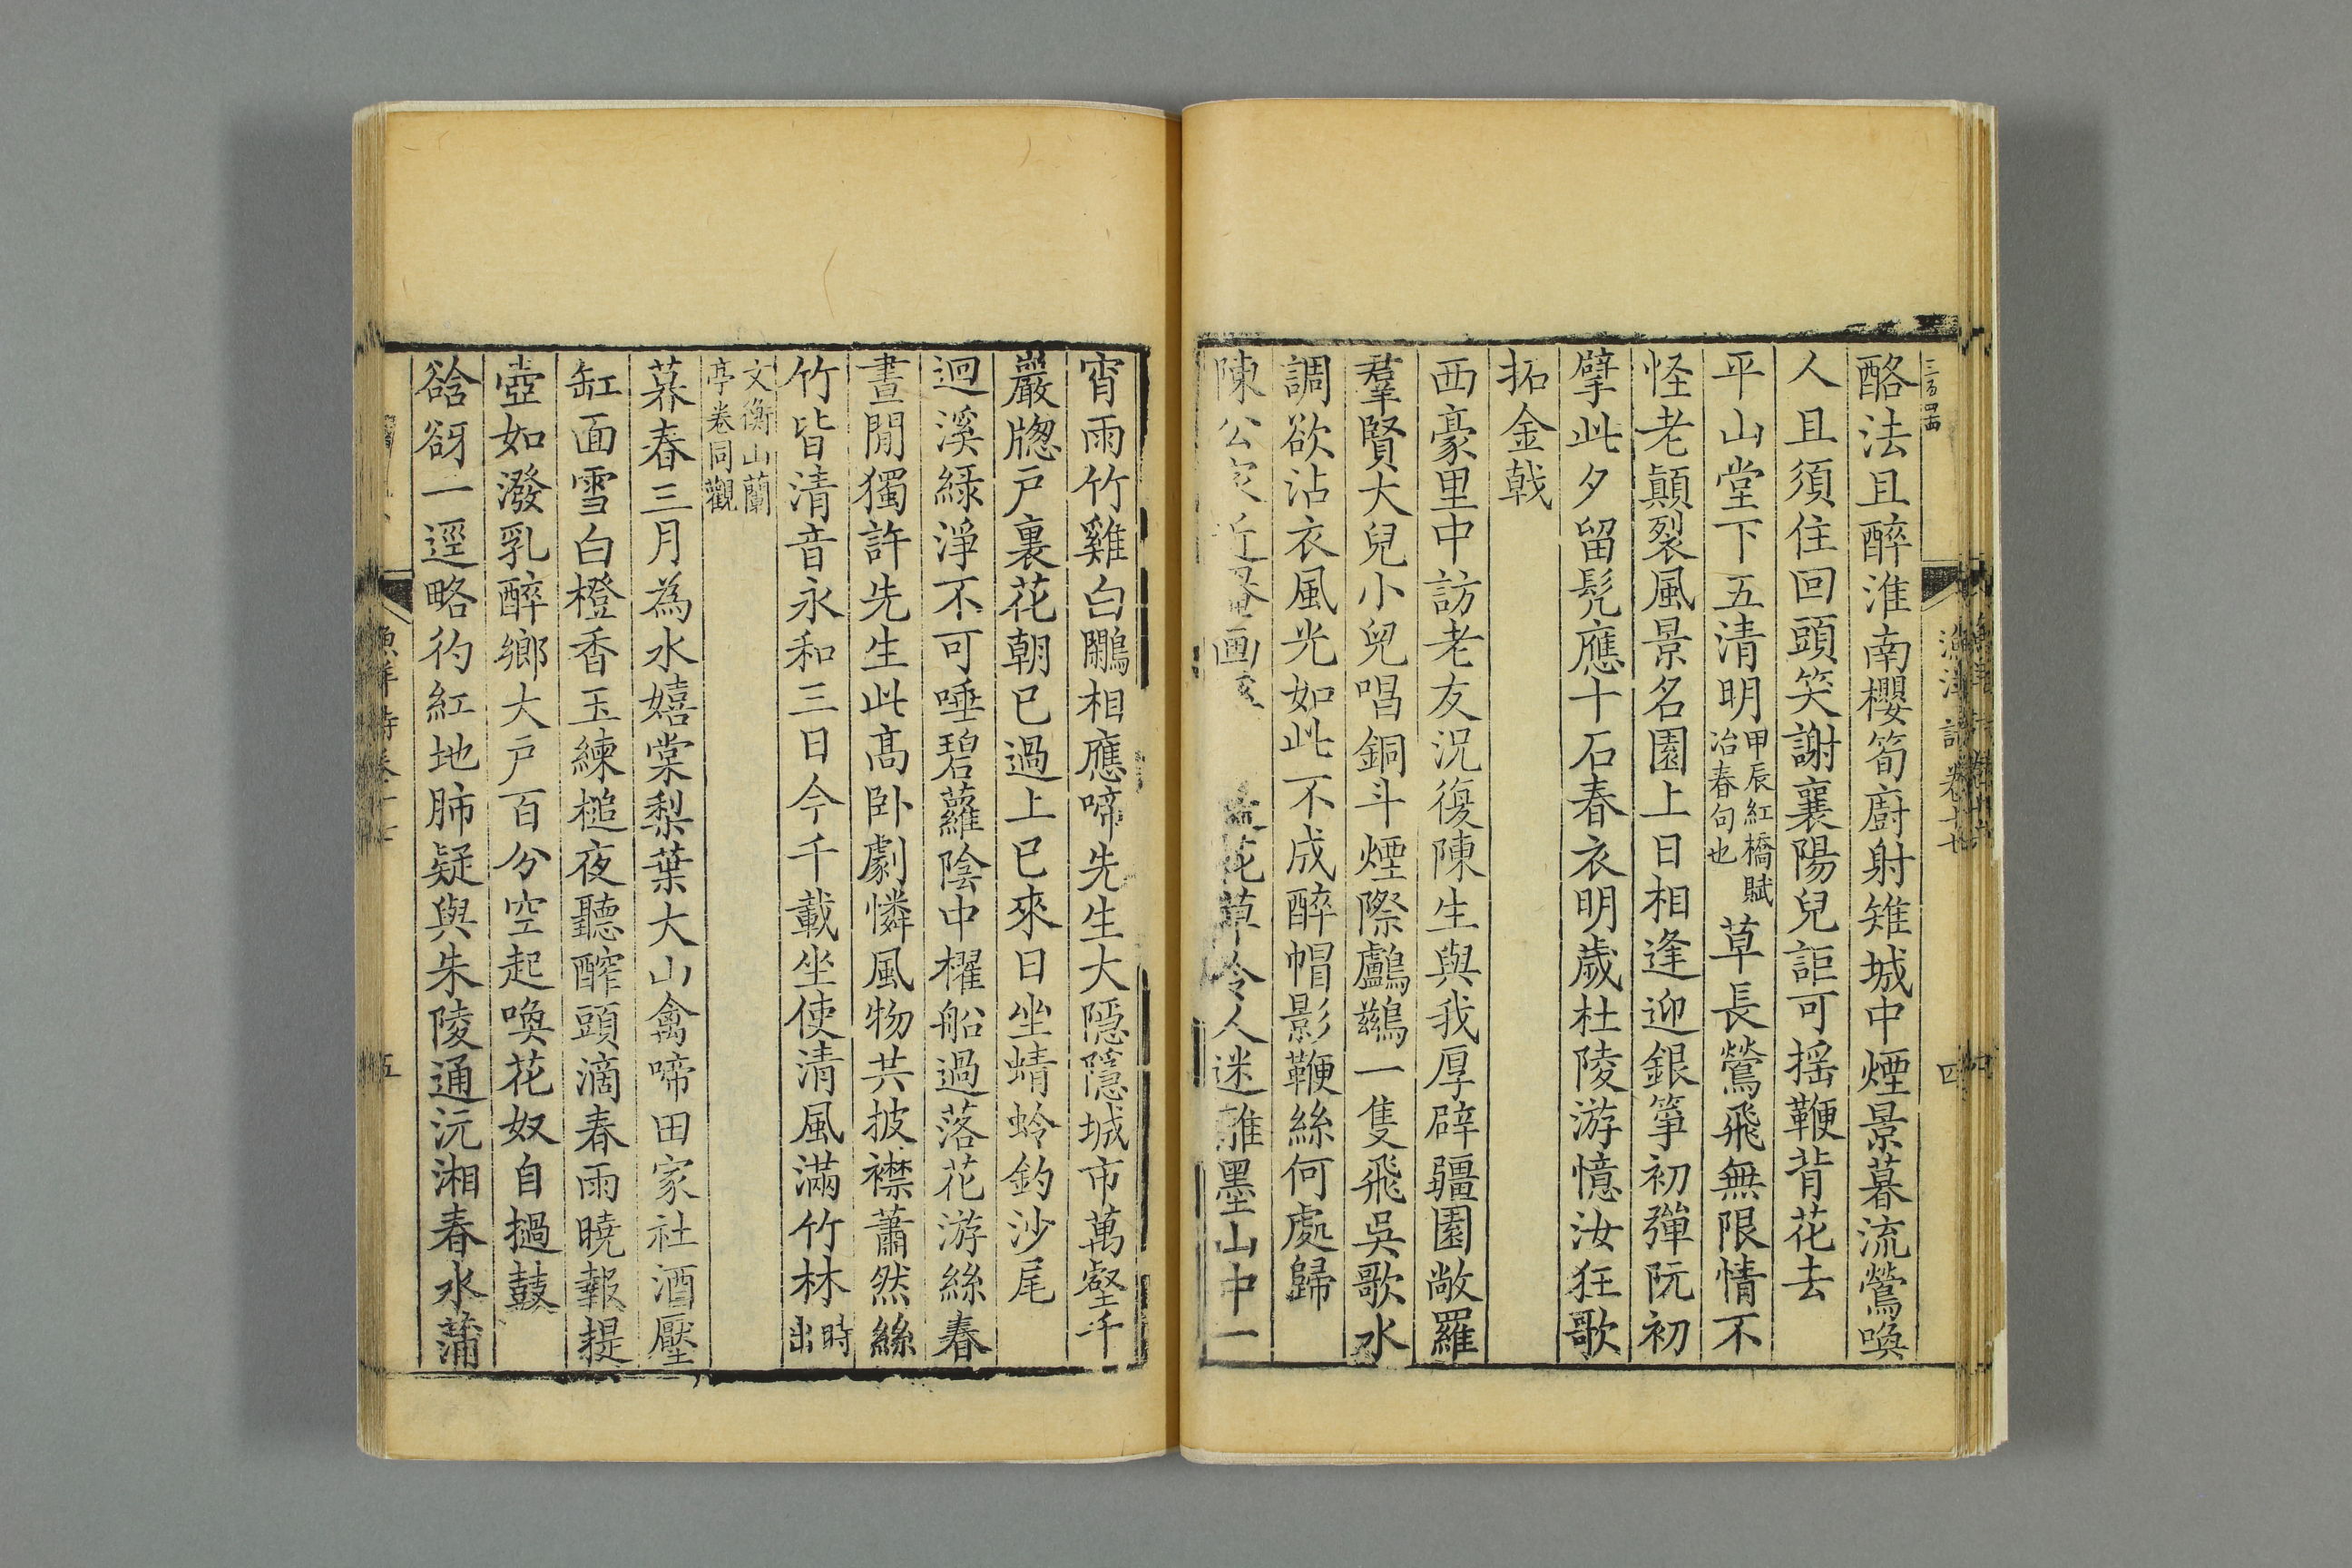 酪法且醉淮南櫻筍廚射雉城中煙景暮流鶯喚
人且須住回頭笑謝襄陽兒詎可揺鞭背花去
平山堂下五清明甲辰紅橋賦冶春句也草長鶯飛無限情不
怪老顛裂風景名園上日相逢迎銀箏初彈阮初
擘此夕留髡應十石春衣明歲杜陵游憶汝狂歌
拓金戟
西豪里中訪老友況復陳生與我厚辟疆園敞羅
羣賢大兒小兒唱銅斗煙際鸕鷀一隻飛吳歌水
調欲沾衣風光如此不成醉帽影鞭絲何處歸
陳公近画花草令人迷離墨山中一
宵雨竹雞白鷴相應啼先生大隱隱城市萬壑千
巖牕戸裏花朝已過上巳來日坐蜻蛉釣沙尾
迴溪緑淨不可唾碧蘿陰中櫂船過落花游絲春
晝閒獨許先生此髙卧劇憐風物共披襟蕭然絲
竹皆清音永和三日今千載坐使清風滿竹林時出
文衡山蘭
亭卷同觀
暮春三月為水嬉棠梨葉大山禽啼田家社酒壓
缸面雪白橙香玉練槌夜聽醡頭滴春雨曉報提
壺如潑乳醉鄉大戸百分空起喚花奴自撾鼓
谽谺一逕略彴紅地肺疑與朱陵通沅湘春水蒲